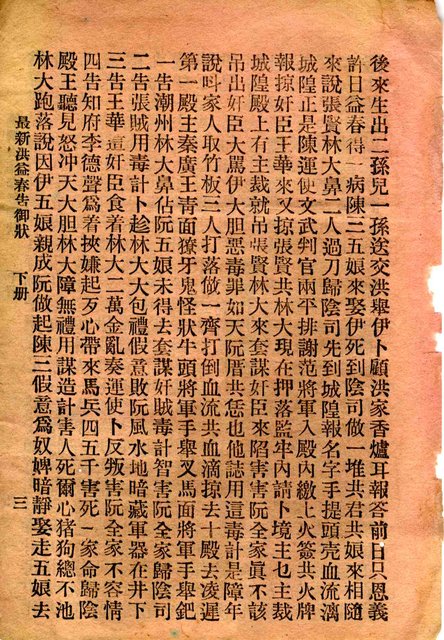 後來生出二孫兒一孫送交洪舉伊卜顧洪家香爐耳報答前日只恩義
許日益春得一病陳三五娘來娶伊死到陰司做一堆共君共娘來相隨
來說張賢林大鼻二人過刀歸陰司先到城隍報名字手提頭壳血流漓
城隍正是陳運使文武判官兩平排謝范將軍入殿內繳上火簽共火牌
報掠奸臣王華來又掠張賢共林大現在押落監牢內請卜境主乜主裁
城隍殿上有主裁就吊張賢林大來套謀奸臣來陷害害阮全家眞不該
吊出奸臣大罵伊大胆惡毒罪如天阮厝共恁也他誌用這毒計是障年
說叫家人取竹板三人打落做一齊打倒血流共血滴掠去十殿去凌遲
第一殿主秦廣王靑面獠牙鬼怪狀牛頭將軍手舉叉馬面將軍手舉鈀
一告潮州林大鼻佔阮五娘未得去套謀奸賊毒計智害阮全家歸陰司
二告張賊用毒計卜趁林大大包禮假意敗阮風水地暗藏軍器在井下
三告王華這奸臣食着林大二萬金亂奏運使卜反叛害阮全家不容情
四告知府李德聲爲着挾嫌起歹心帶來馬兵四五千害死一家命歸陰
殿王聽見怒冲天大胆林大障無禮用謀造計害人死爾心猪狗總不池
林大跑落說因伊五娘親成阮做起陳三假意爲奴婢暗靜娶走五娘去
最新洪益春告御狀 下册 三